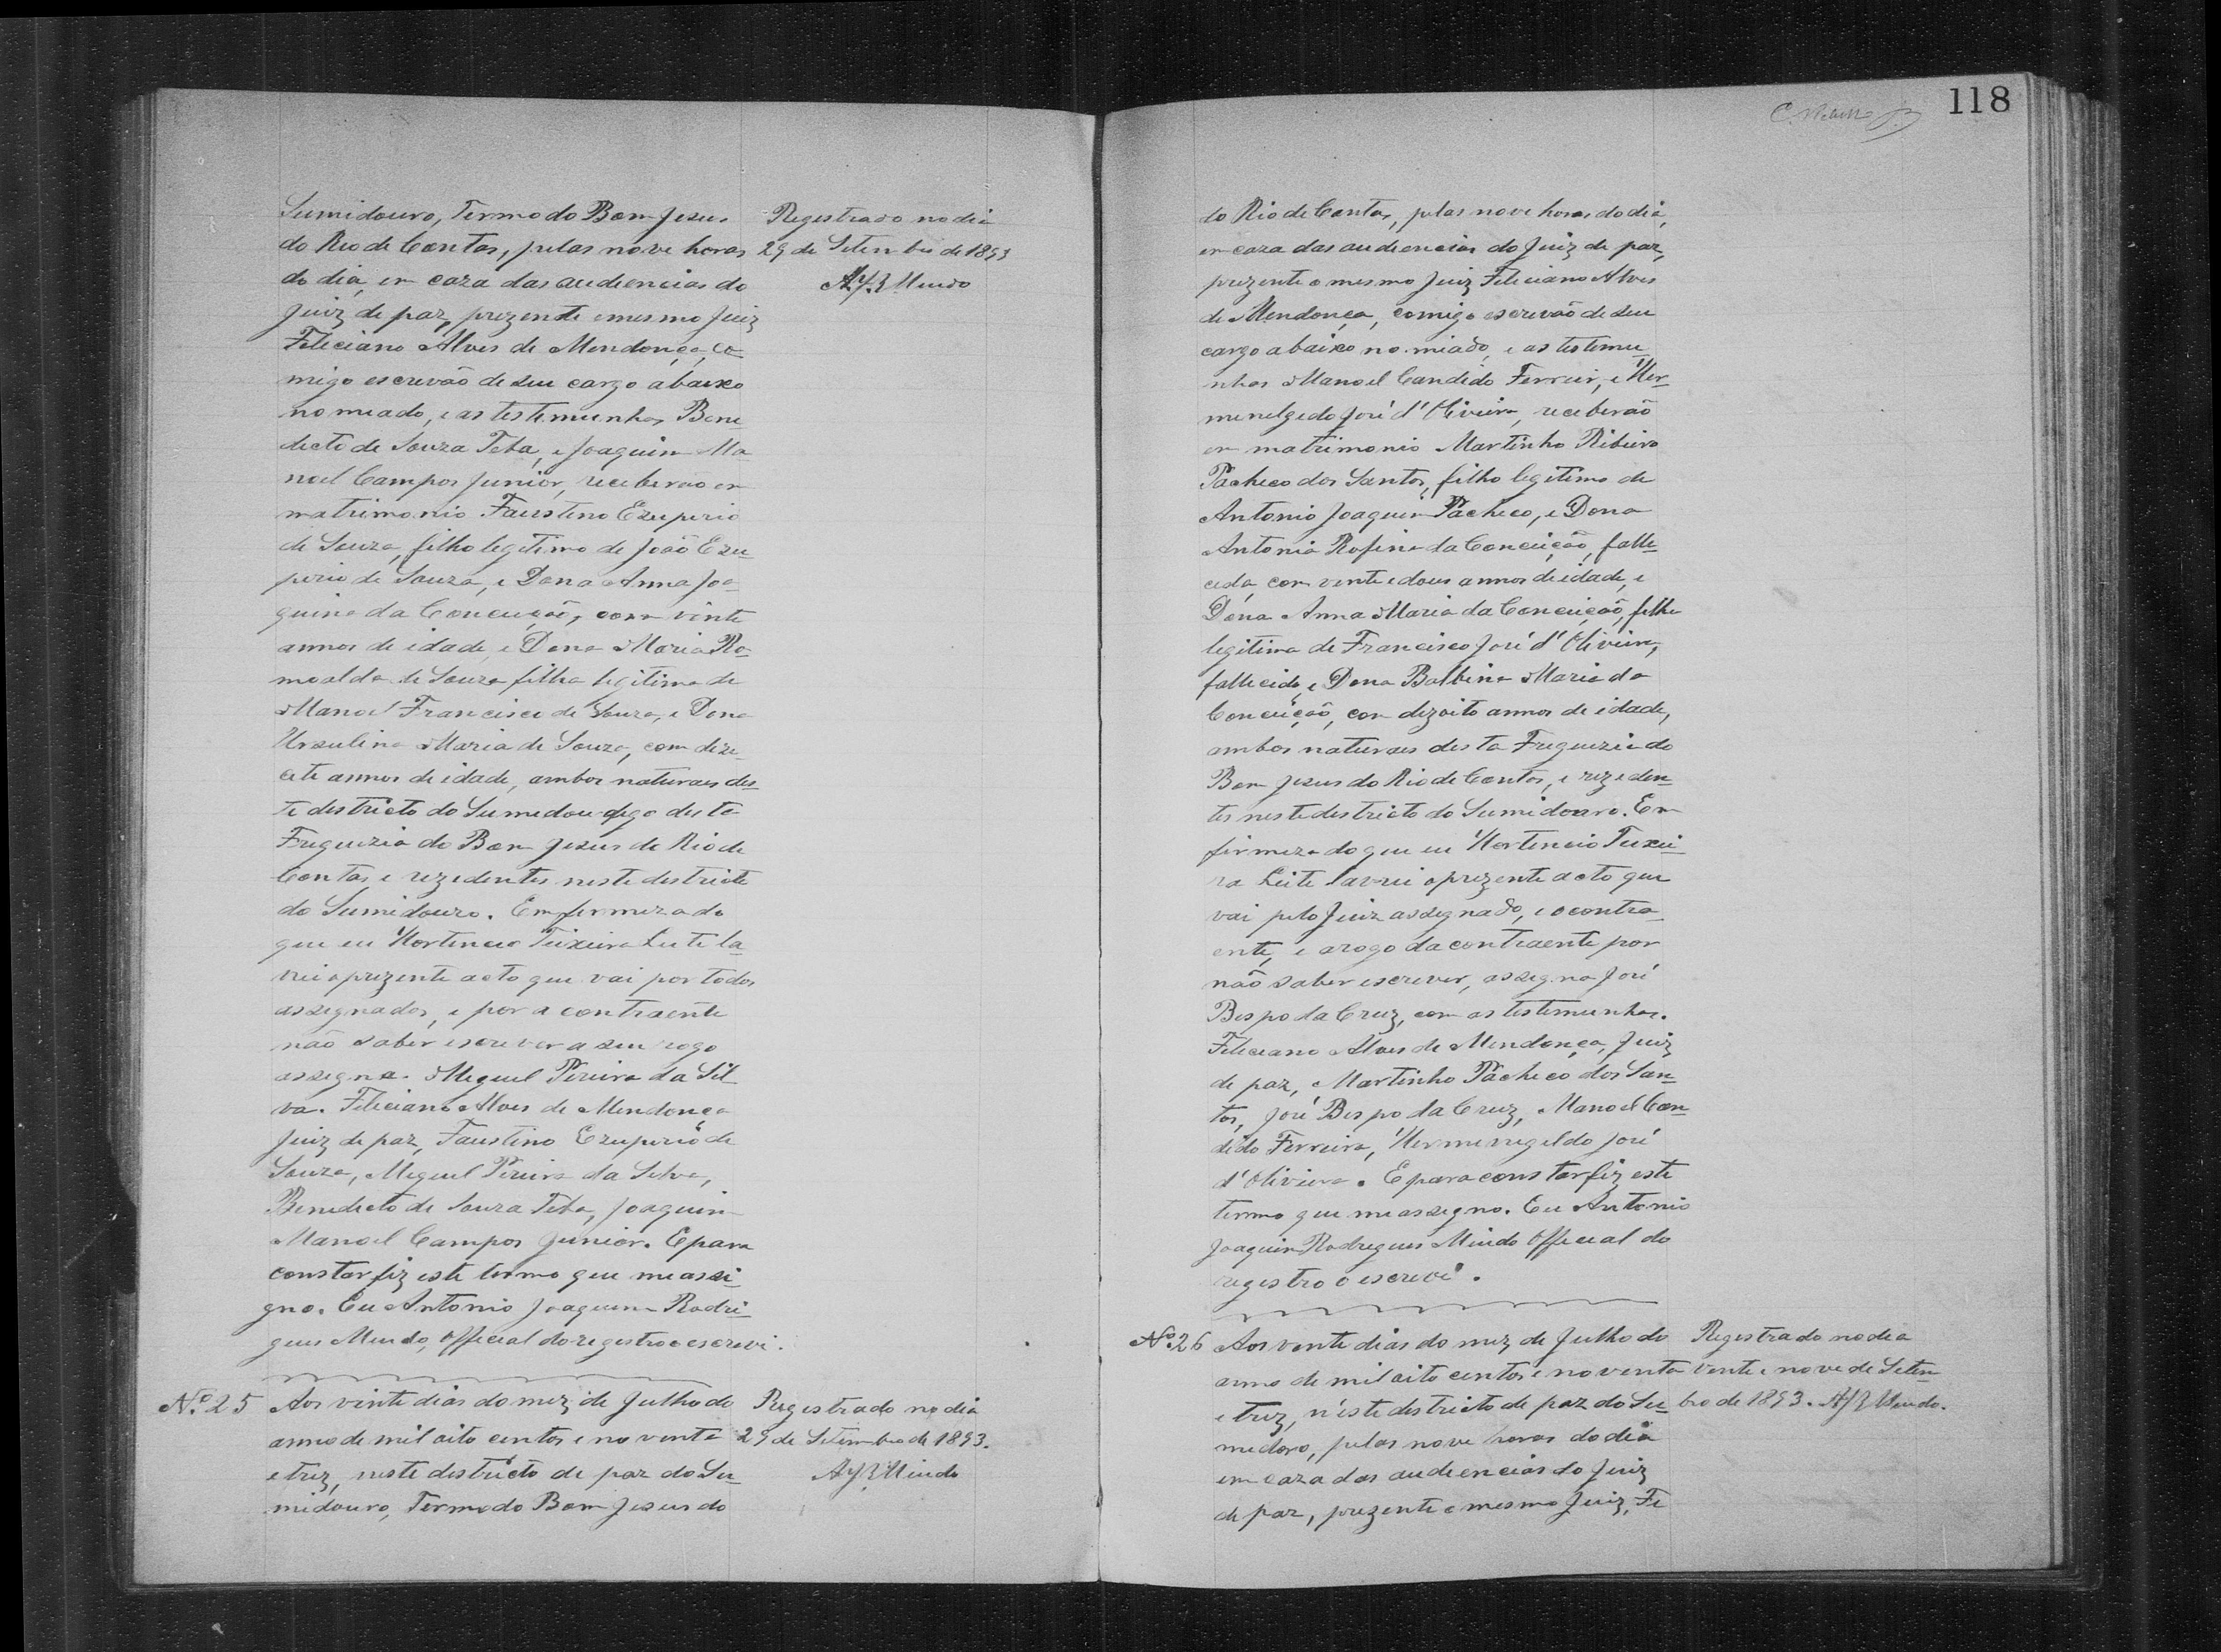 Sumidouro, Termo do Bom Jesus
do Rio de Contas, pelas nove horas
do dia, em caza das audiencias do
Juiz de paz, prezente o mesmo Juiz
Feliciano Alves de Mendonça, co
migo escrevão de seu cargo abaixo
nomeado, e as testemunhas Bene
dicto de Souza Teba, e Joaquim Ma
noel Campos Junior, receberão em
matrimonio Faustino Ezuperio
de Souza, filho legitimo de João Ezu_
perio de Souza, e Dona Anna Joa_
quina da Conceição, com vinte
annos de idade, e Dona Maria Ro_
moalda de Souza filha legitima de
Manoel Francisco de Souza, e Dona
Ursulina Maria de Souza, com deze_
cete annos de idade, ambos naturaes des_
te destricto do Sumedou digo desta
Freguezia do Bom Jesus do Rio de
Contas, e rezedentes neste destricto
do Sumidouro. Em firmeza do
que eu Hortencio Teixeira Leite la_
vrei o prezente acto que vai por todos
assegnados, e por a contraente
não saber escrever a seu rogo
assegna. Meguel Pereira da Sil_
va. Feliciano Alves de Mendonça
Juiz de paz, Faustino Ezuperio de
Souza, Meguel Pereira da Selva,
Benedicto de Souza Teba, Joaquim
Manoel Campos Junior. E para
constar fiz este termo que me assi_
gno. Eu Antonio Joaquim Rodri_
gues Mendo, Official do registro o escrevi.
Registrado no dia
29 de Setembro de 1893
AJR Mendo
Nº 25 Aos vinte dias do mez de Julho do
anno de mil oito centos e noventa
e trez, neste destricto de paz do Su_
midouro, Termo do Bom Jesus do
Registrado no dia
29 de Setembro de 1893.
AJR Mendo
118
do Rio de Contas, pelas nove horas do dia,
em caza das audiencias do Juiz de paz,
prezente o mesmo Juiz Feliciano Alves
de Mendonça, comigo escrevão de seu
cargo abaixo nomiado, e as testemu_
nhas Manoel Candido Ferreir, e Her_
menelgedo José d'Oliveira, receberão
em matrimonio Martinho Ribeiro
Pacheco dos Santos, filho legitimo de
Antonio Joaquim Pacheco, e Dona
Antonia Rofina da Conceição, falle_
cida, com vente e dous annos de idade, e
Dona Anna Maria da Conceição, filha
legitima de Francisco José d'Oliveira,
fallecido, e Dona Balbina Maria da
Conceição, com dezoito annos de idade,
ambos naturaes desta Freguezia do
Bom Jesus do Rio de Contas, e rezeden_
tes neste destricto do Sumidouro. Em
firmeza do que eu Hortencio Teixei_
ra Leite lavrei o prezente acto que
vai pelo Juiz assegnado, e o contra_
ente, e arogo da contraente por
não saber escrever, assegna José
Bespo da Cruz, com as testemunhas.
Feleciano Alves de Mendonça, Juiz
de paz, Martinho Pacheco dos San_
tos, José Bespo da Cruz, Manoel Can_
dido Ferreira, Hermenegeldo José
d'Oliveira. E para constar fiz este
termo que me assegno. Eu Antonio
Joaquim Rodregues Mendo Offecial do
registro o escrevi.
Nº 26 Aos vente dias do mez de Julho do
anno de mil oito centos e noventa
e trez, n'este destricto de paz do Su_
medoro, pelas nove horas do dia
em caza das audiencias do Juiz
de paz, prezente o mesmo Juiz, Fe
Registrado no dia
vente e nove de Setem_
bro de 1893. AJR Mendo.